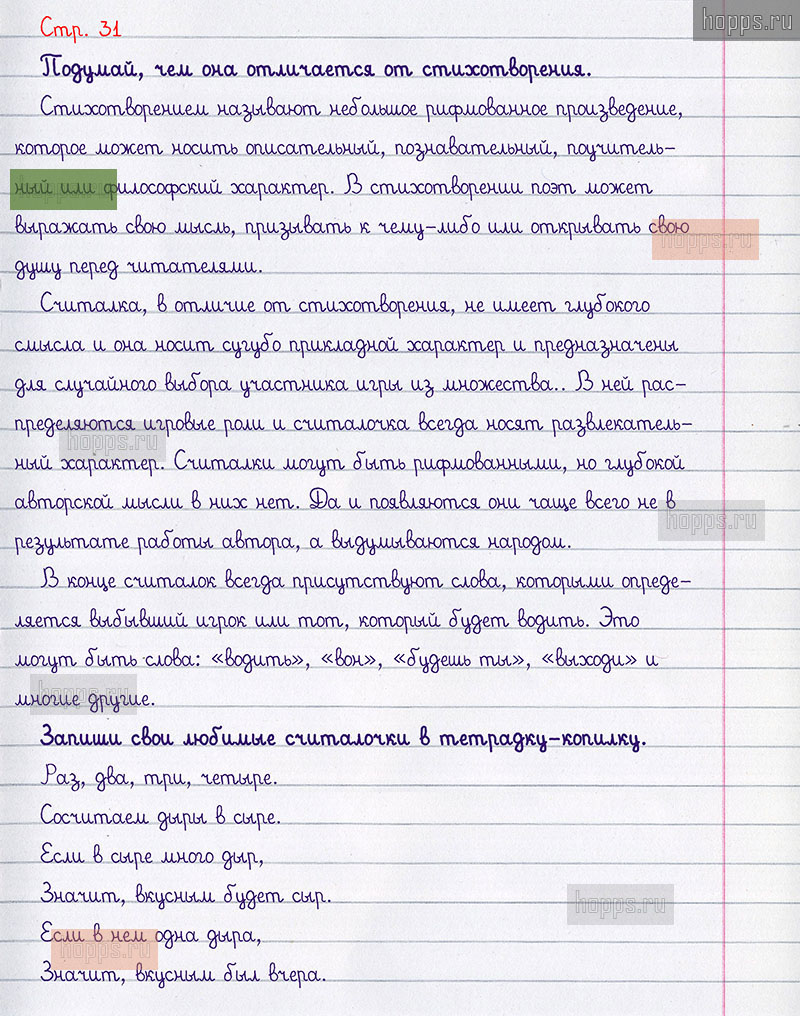 hopps.ru
Стр. 31
Подумай, чем она отличается от стихотворения.
Стихотворением называют небольшое рифмованное произведение,
которое может носить описательный, познавательный, поучитель-
ный или философский характер. В стихотворении поэт может
выражать свою мысль, призывать к чему-либо или открывать свою
hopps.ru
душу перед читателями.
Считалка, в отличие от стихотворения, не имеет глубокого
смысла и она носит сугубо прикладной характер и предназначены
для случайного выбора участника игры из множества.. В ней рас-
пределяются игровые роли и считалочка всегда носят развлекатель-
hopps.ru
ный характер. Считалки могут быть рифмованными, но глубокой
авторской мысли в них нет. Да и появляются они чаще всего не в
hopps.ru
результате работы автора, а выдумываются народом.
В конце считалок всегда присутствуют слова, которыми опреде-
ляется выбывший игрок или тот, который будет водить. Это
могут быть слова: «водить», «вон», «будешь ты», «выходи» и
hopps.ru
многие другие.
Запиши свои любимые считалочки в тетрадку-копилку.
Раз, два, три, четыре.
Сосчитаем дыры в сыре.
Если в сыре много дыр,
Значит, вкусным будет сыр.
hopps.ru
Если в нем одна дыра,
hopps.ru
Значит, вкусным был вчера.